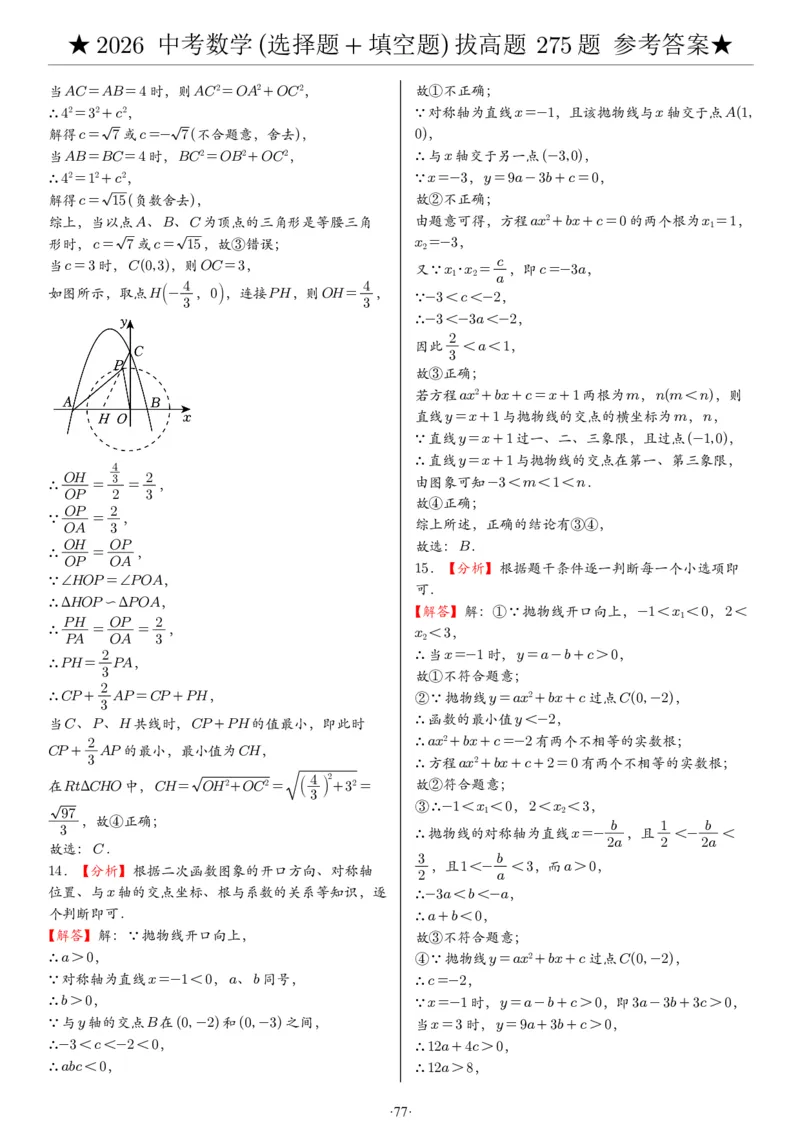 ★2026 中考数学(选择题+填空题)拔高题 275题 参考答案★
当AC=AB=4时，则AC²=OA²+OC²，
∴4²=3²+c²，
解得c=√7或c=-√7(不合题意，舍去)，
当AB=BC=4时，BC²=OB²+OC²，
∴4²=1²+c²，
解得c=√15(负数舍去)，
综上，当以点A、B、C为顶点的三角形是等腰三角
形时，c=√7或c=√15，故③错误；
当c=3时，C(0,3)，则OC=3，
如图所示，取点H(-4/3，0)，连接PH，则OH=4/3，
y
C
P
A
B
H O
x
∴OH/OP=(4/3)/2=2/3，
∵OP/OA=2/3，
∴OH/OP=OP/OA，
∵∠HOP=∠POA，
∴ΔHOP∽ΔPOA，
∴PH/PA=OP/OA=2/3，
∴PH=2/3PA，
∴CP+2/3AP=CP+PH，
当C、P、H共线时，CP+PH的值最小，即此时
CP+2/3AP的最小，最小值为CH，
在RtΔCHO中，CH=√(OH²+OC²)=√((4/3)²+3²)=
√97/3，故④正确；
故选：C．
14．【分析】根据二次函数图象的开口方向、对称轴
位置、与x轴的交点坐标、根与系数的关系等知识，逐
个判断即可．
【解答】解：∵抛物线开口向上，
∴a>0，
∵对称轴为直线x=-1<0，a、b同号，
∴b>0，
∵与y轴的交点B在(0,-2)和(0,-3)之间，
∴-3<c<-2<0，
∴abc<0，
故①不正确；
∵对称轴为直线x=-1，且该抛物线与x轴交于点A(1,
0)，
∴与x轴交于另一点(-3,0)，
∵x=-3，y=9a-3b+c=0，
故②不正确；
由题意可得，方程ax²+bx+c=0的两个根为x₁=1，
x₂=-3，
又∵x₁·x₂=c/a，即c=-3a，
∵-3<c<-2，
∴-3<-3a<-2，
因此2/3<a<1，
故③正确；
若方程ax²+bx+c=x+1两根为m，n(m<n)，则
直线y=x+1与抛物线的交点的横坐标为m，n，
∵直线y=x+1过一、二、三象限，且过点(-1,0)，
∴直线y=x+1与抛物线的交点在第一、第三象限，
由图象可知-3<m<1<n．
故④正确；
综上所述，正确的结论有③④，
故选：B．
15．【分析】根据题干条件逐一判断每一个小选项即
可．
【解答】解：①∵抛物线开口向上，-1<x₁<0，2<
x₂<3，
∴当x=-1时，y=a-b+c>0，
故①不符合题意；
②∵抛物线y=ax²+bx+c过点C(0,-2)，
∴函数的最小值y<-2，
∴ax²+bx+c=-2有两个不相等的实数根；
∴方程ax²+bx+c+2=0有两个不相等的实数根；
故②符合题意；
③∴-1<x₁<0，2<x₂<3，
∴抛物线的对称轴为直线x=-b/2a，且1/2<-b/2a<
3/2，且1<-b/a<3，而a>0，
∴-3a<b<-a，
∴a+b<0，
故③不符合题意；
④∵抛物线y=ax²+bx+c过点C(0,-2)，
∴c=-2，
∵x=-1时，y=a-b+c>0，即3a-3b+3c>0，
当x=3时，y=9a+3b+c>0，
∴12a+4c>0，
∴12a>8，
·77·